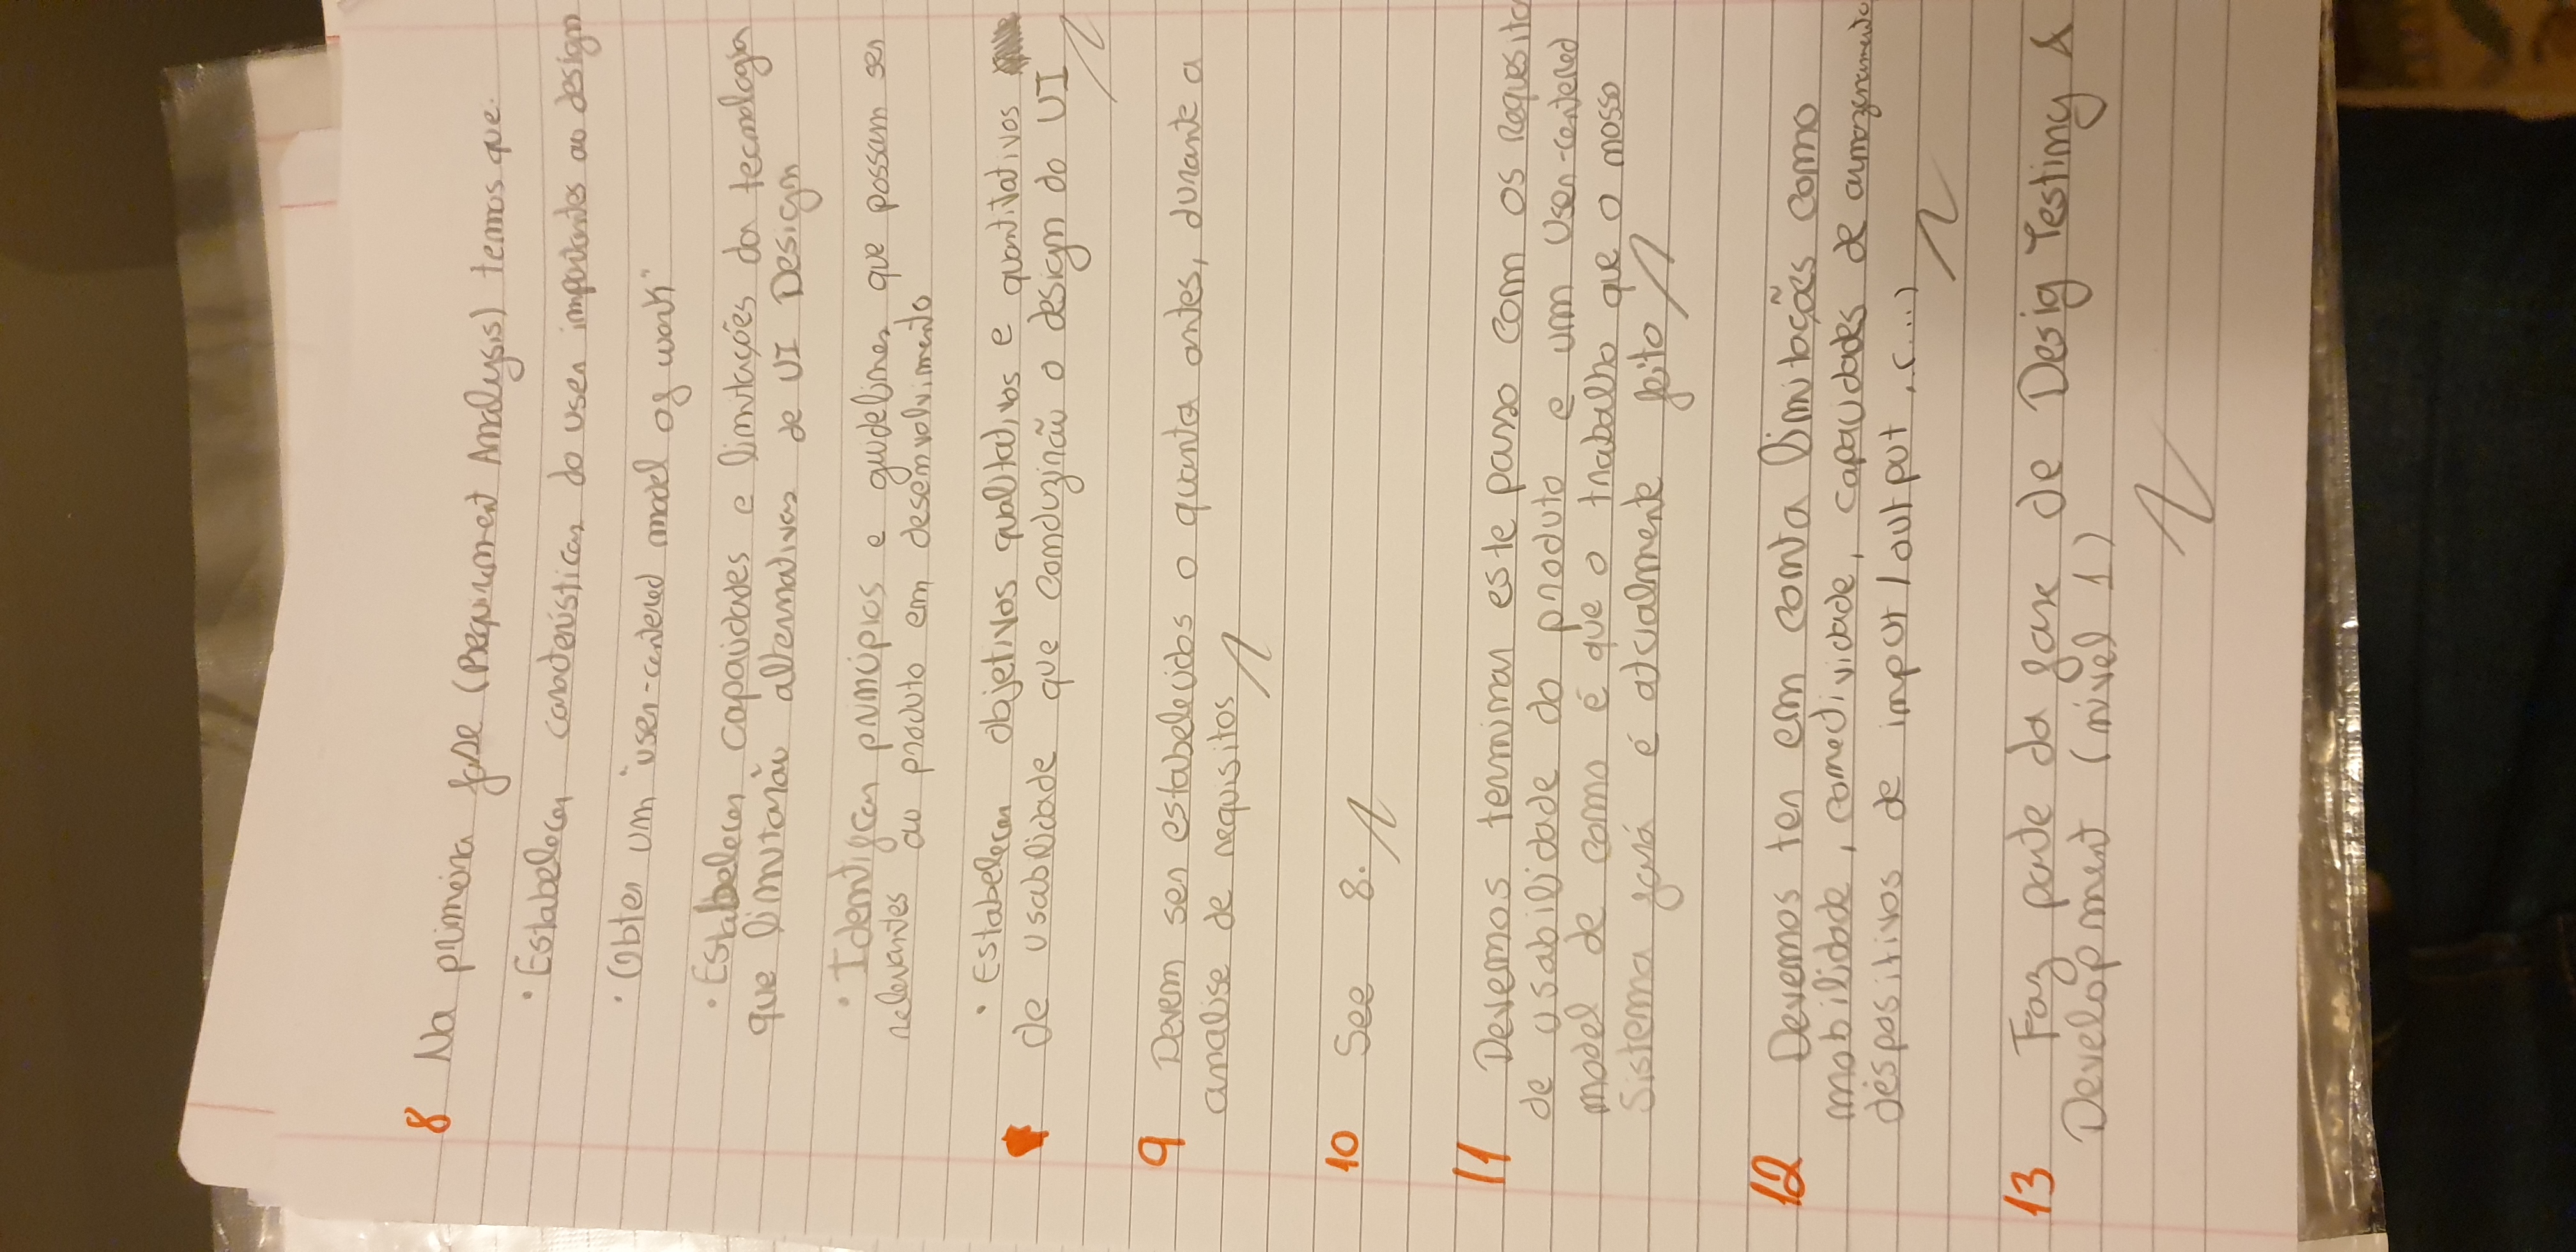 8 Na primeira fase (Requirement Analysis) temos que:
• Estabelecer características do user importantes ao design
• Obter um "user-centered model of work"
• Estabelecer capacidades e limitações da tecnologia
que limitarão alternativas de UI Design
• Identificar princípios e guidelines que possam ser
relevantes ao produto em desenvolvimento
• Estabelecer objetivos qualitativos e quantitativos
de usabilidade que conduzirão o design do UI
9 Devem ser estabelecidos o quanto antes, durante a
analise de requisitos
10 See 8.
11 Devemos terminar este passo com os Requesito
de usabilidade do produto e um User-centered
model de como é que o trabalho que o nosso
sistema fará é atualmente feito
12 Devemos ter em conta limitações como
mobilidade, conectividade, capacidades de armazenamento
despositivos de input/output, (...)
13 Faz parte da fase de Desig Testing &
Development (nivel 1)